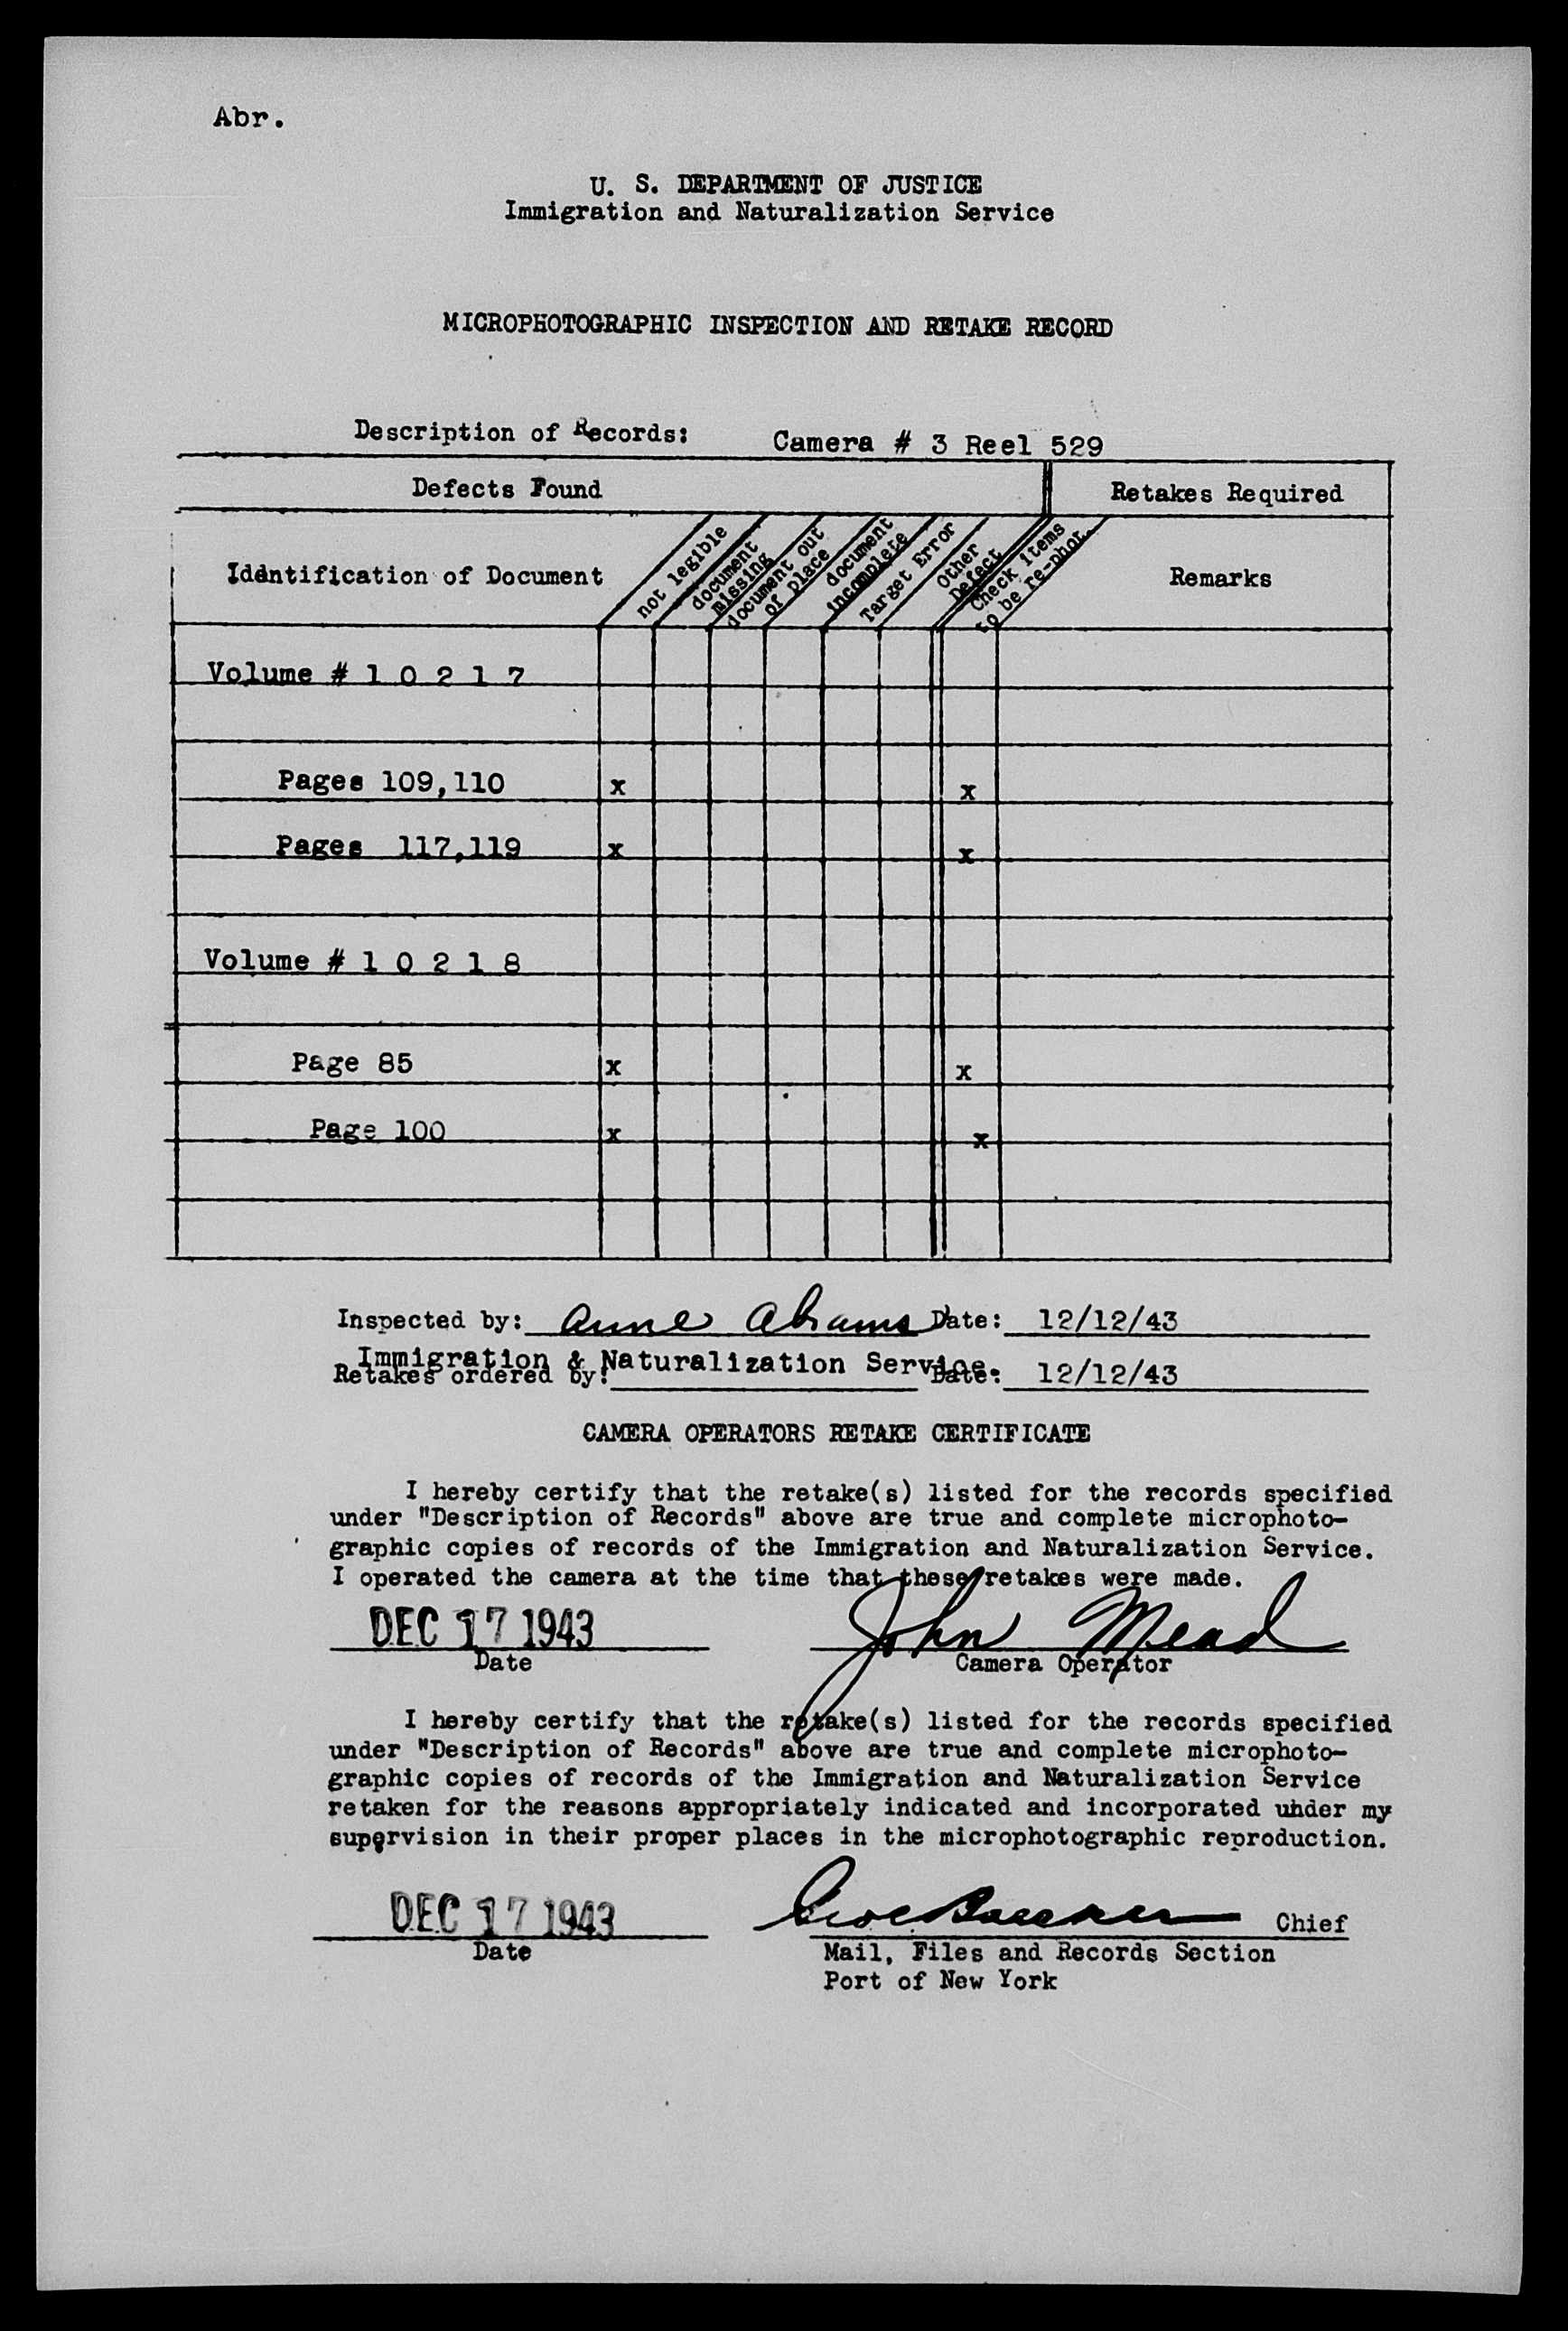 Abr.
U. S. DEPARTMENT OF JUSTICE
Immigration and Naturalization Service
MICROPHOTOGRAPHIC INSPECTION AND RETAKE RECORD
Description of Records: Camera # 3 Reel 529
Defects Found Retakes Required
Identification of Document not legible document missing document out of place document incomplete Target Error Other Defect Check items to be re-phot. Remarks
Volume # 1 0 2 1 7
Pages 109,110 x x
Pages 117,119 x x
Volume # 1 0 2 1 8
Page 85 x x
Page 100 x x
Inspected by: Anne Abrams Date: 12/12/43
Immigration & Naturalization Service.
Retakes ordered by: Date: 12/12/43
CAMERA OPERATORS RETAKE CERTIFICATE
I hereby certify that the retake(s) listed for the records specified
under "Description of Records" above are true and complete microphoto-
graphic copies of records of the Immigration and Naturalization Service.
I operated the camera at the time that these retakes were made.
DEC 17 1943 John Mead
Date Camera Operator
I hereby certify that the retake(s) listed for the records specified
under "Description of Records" above are true and complete microphoto-
graphic copies of records of the Immigration and Naturalization Service
retaken for the reasons appropriately indicated and incorporated under my
supervision in their proper places in the microphotographic reproduction.
DEC 17 1943 Chief
Date Mail, Files and Records Section
Port of New York